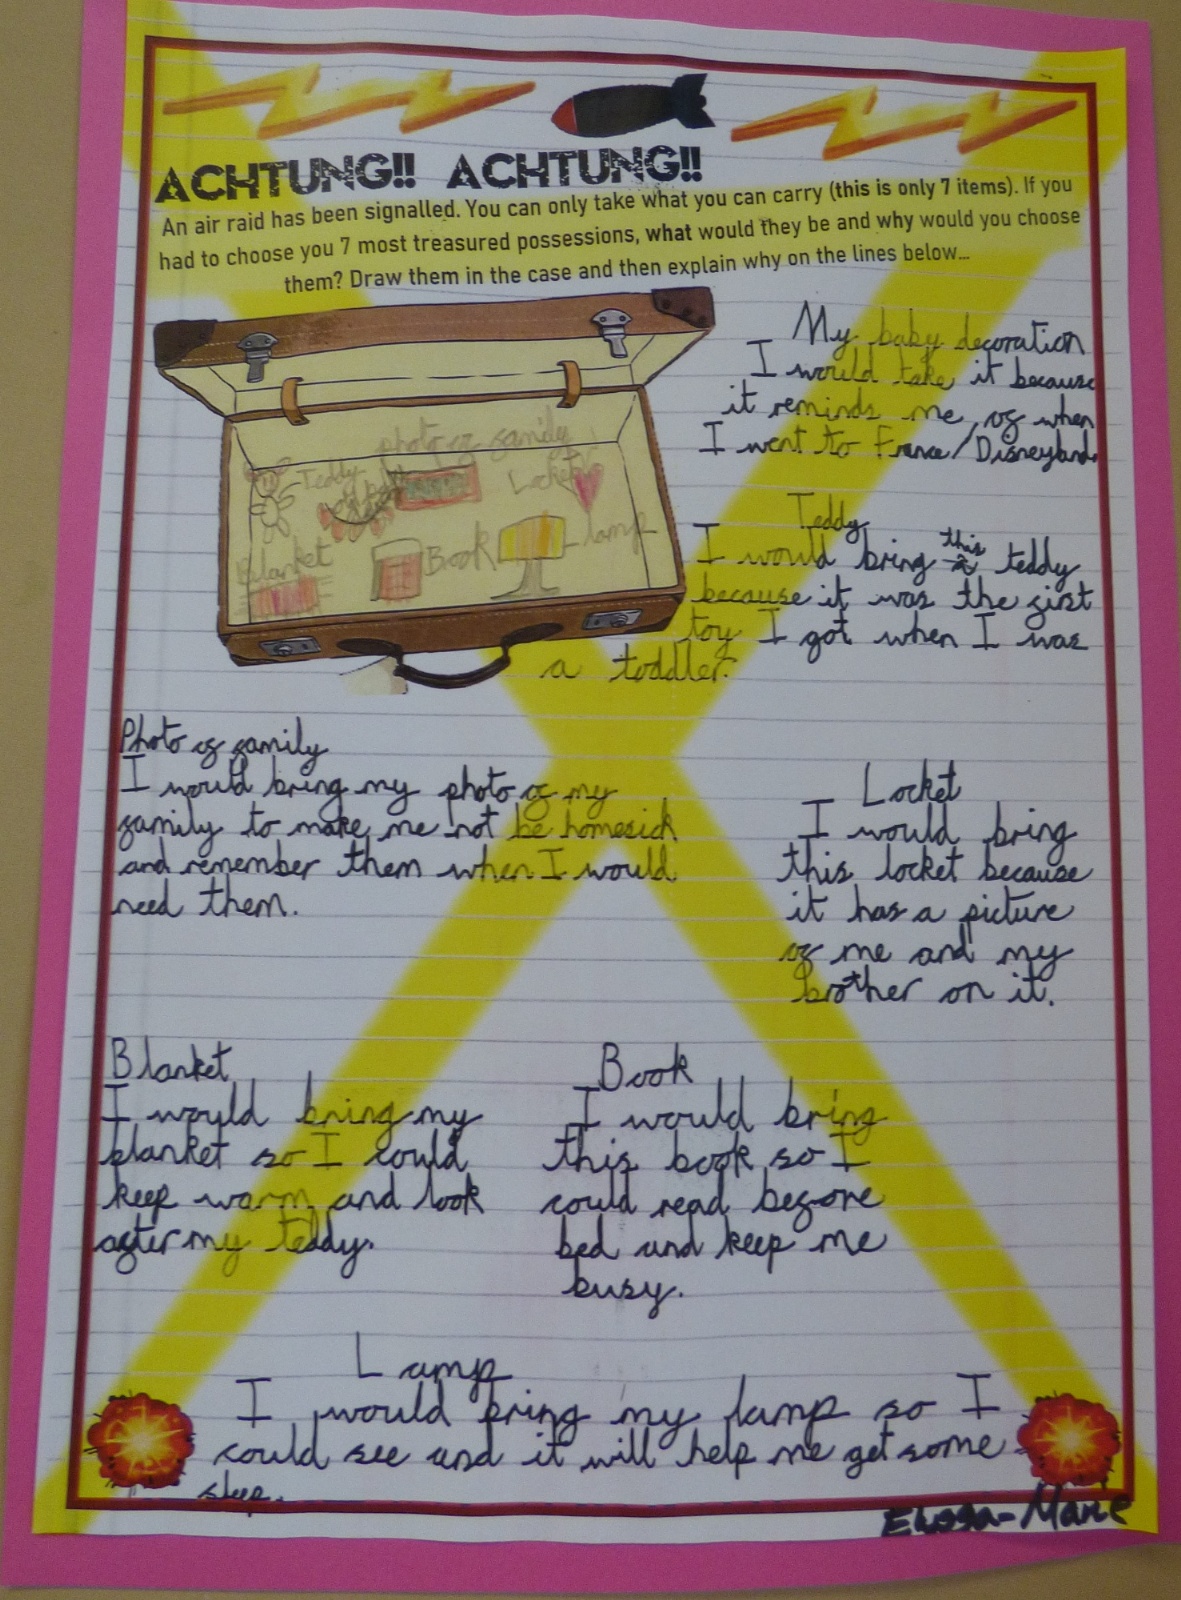 ACHTUNG!! ACHTUNG!!
An air raid has been signalled. You can only take what you can carry (this is only 7 items). If you
had to choose you 7 most treasured possessions, what would they be and why would you choose
them? Draw them in the case and then explain why on the lines below...
photo of family
Teddy
Locket
Blanket
Book
lamp
My baby decoration
I would take it because
it reminds me of when
I went to France/Disneyland.
Teddy
I would bring this teddy
because it was the first
toy I got when I was
a toddler.
Photo of family
I would bring my photo of my
family to make me not be homesick
and remember them when I would
need them.
Locket
I would bring
this locket because
it has a picture
of me and my
brother on it.
Blanket
I would bring my
blanket so I could
keep warm and look
after my teddy.
Book
I would bring
this book so I
could read before
bed and keep me
busy.
Lamp
I would bring my lamp so I
could see and it will help me get some
sleep.
-Marie